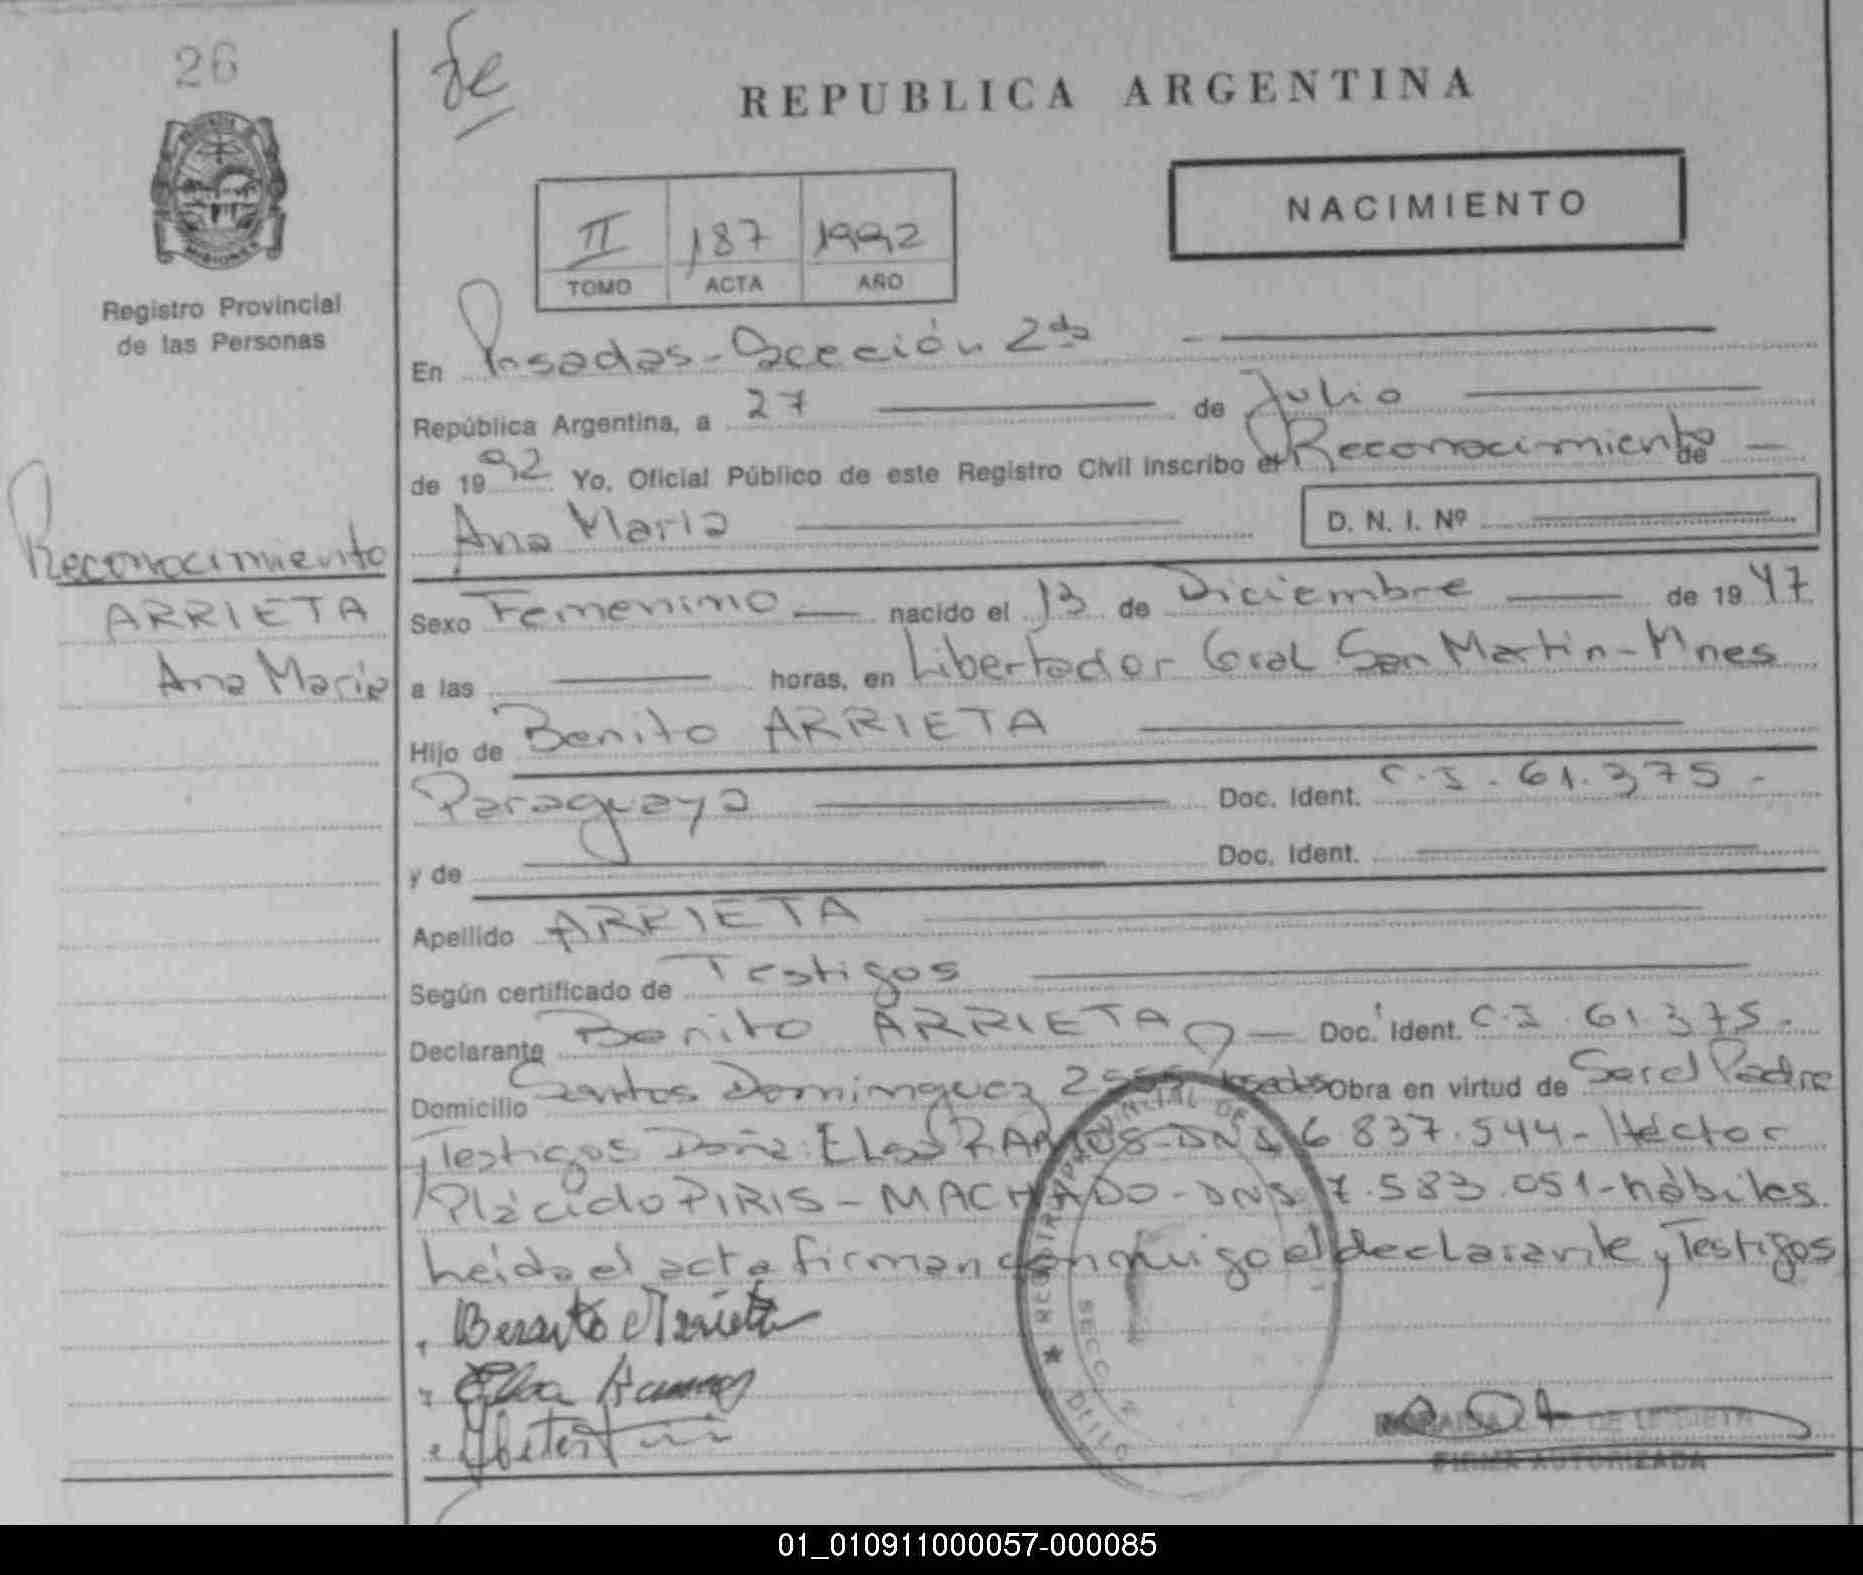 26
REPUBLICA ARGENTINA
NACIMIENTO
II 187 1992
TOMO ACTA AÑO
Registro Provincial
de las Personas
En Posadas - Sección 2da
República Argentina, a 27 de Julio
de 1992 Yo, Oficial Público de este Registro Civil inscribo el Reconocimiento de
Ana Maria D. N. I. Nº
Reconocimiento
ARRIETA
Ana Maria
Sexo Femenino nacido el 13 de Diciembre de 1947
a las horas, en Libertador Gral San Martin - Mnes
Hijo de Benito ARRIETA
Paraguaya Doc. Ident. C.I. 61.375.-
y de Doc. Ident.
Apellido ARRIETA
Según certificado de Testigos
Declarante Benito ARRIETA Doc. Ident. C.I. 61.375.-
Domicilio Santos Dominguez Posadas Obra en virtud de Ser el Padre
y Testigos Doña RAMOS - DNI 6.837.544 - Héctor
Plácido PIRIS - MACHADO - DNI 7.583.051 - hábiles
Leída el acta firman conmigo el declarante y Testigos
Benito Arrieta
Elba Ramos
SECC
FIRMA AUTORIZADA
01_010911000057-000085